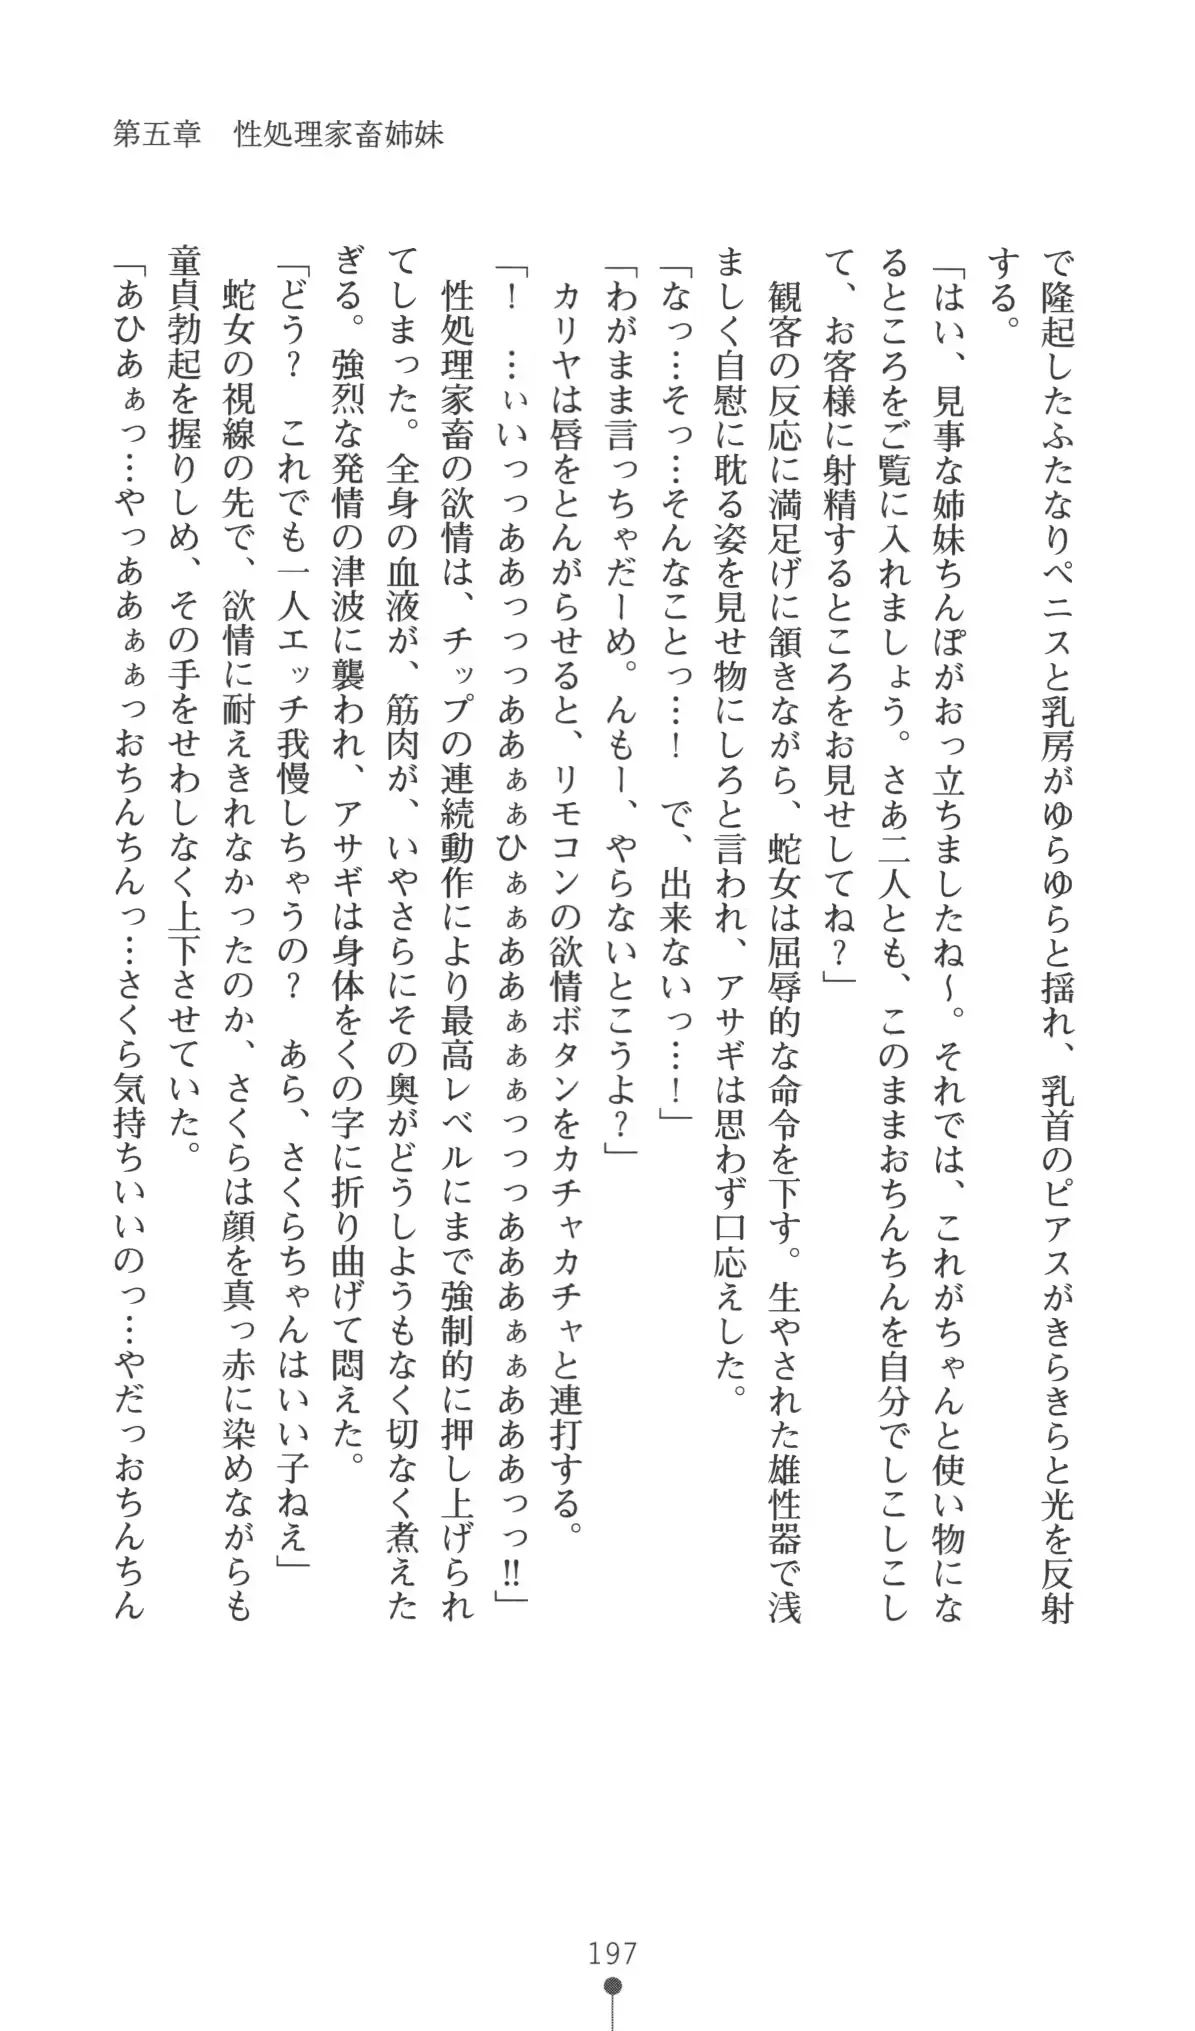 第五章　性処理家畜姉妹
で隆起したふたなりペニスと乳房がゆらゆらと揺れ、乳首のピアスがきらきらと光を反射
する。
「はい、見事な姉妹ちんぽがおっ立ちましたね～。それでは、これがちゃんと使い物にな
るところをご覧に入れましょう。さあ二人とも、このままおちんちんを自分でしこしこし
て、お客様に射精するところをお見せしてね？」
　観客の反応に満足げに頷きながら、蛇女は屈辱的な命令を下す。生やされた雄性器で浅
ましく自慰に耽る姿を見せ物にしろと言われ、アサギは思わず口応えした。
「なっ…そっ…そんなことっ…！　で、出来ないっ…！」
「わがまま言っちゃだーめ。んもー、やらないとこうよ？」
　カリヤは唇をとんがらせると、リモコンの欲情ボタンをカチャカチャと連打する。
「！　…ぃいっっああっっっああぁぁひぁぁああぁぁぁっっっあああぁぁあああっっ‼」
　性処理家畜の欲情は、チップの連続動作により最高レベルにまで強制的に押し上げられ
てしまった。全身の血液が、筋肉が、いやさらにその奥がどうしようもなく切なく煮えた
ぎる。強烈な発情の津波に襲われ、アサギは身体をくの字に折り曲げて悶えた。
「どう？　これでも一人エッチ我慢しちゃうの？　あら、さくらちゃんはいい子ねえ」
　蛇女の視線の先で、欲情に耐えきれなかったのか、さくらは顔を真っ赤に染めながらも
童貞勃起を握りしめ、その手をせわしなく上下させていた。
「あひあぁっ…やっああぁぁっおちんちんっ…さくら気持ちいいのっ…やだっおちんちん
197